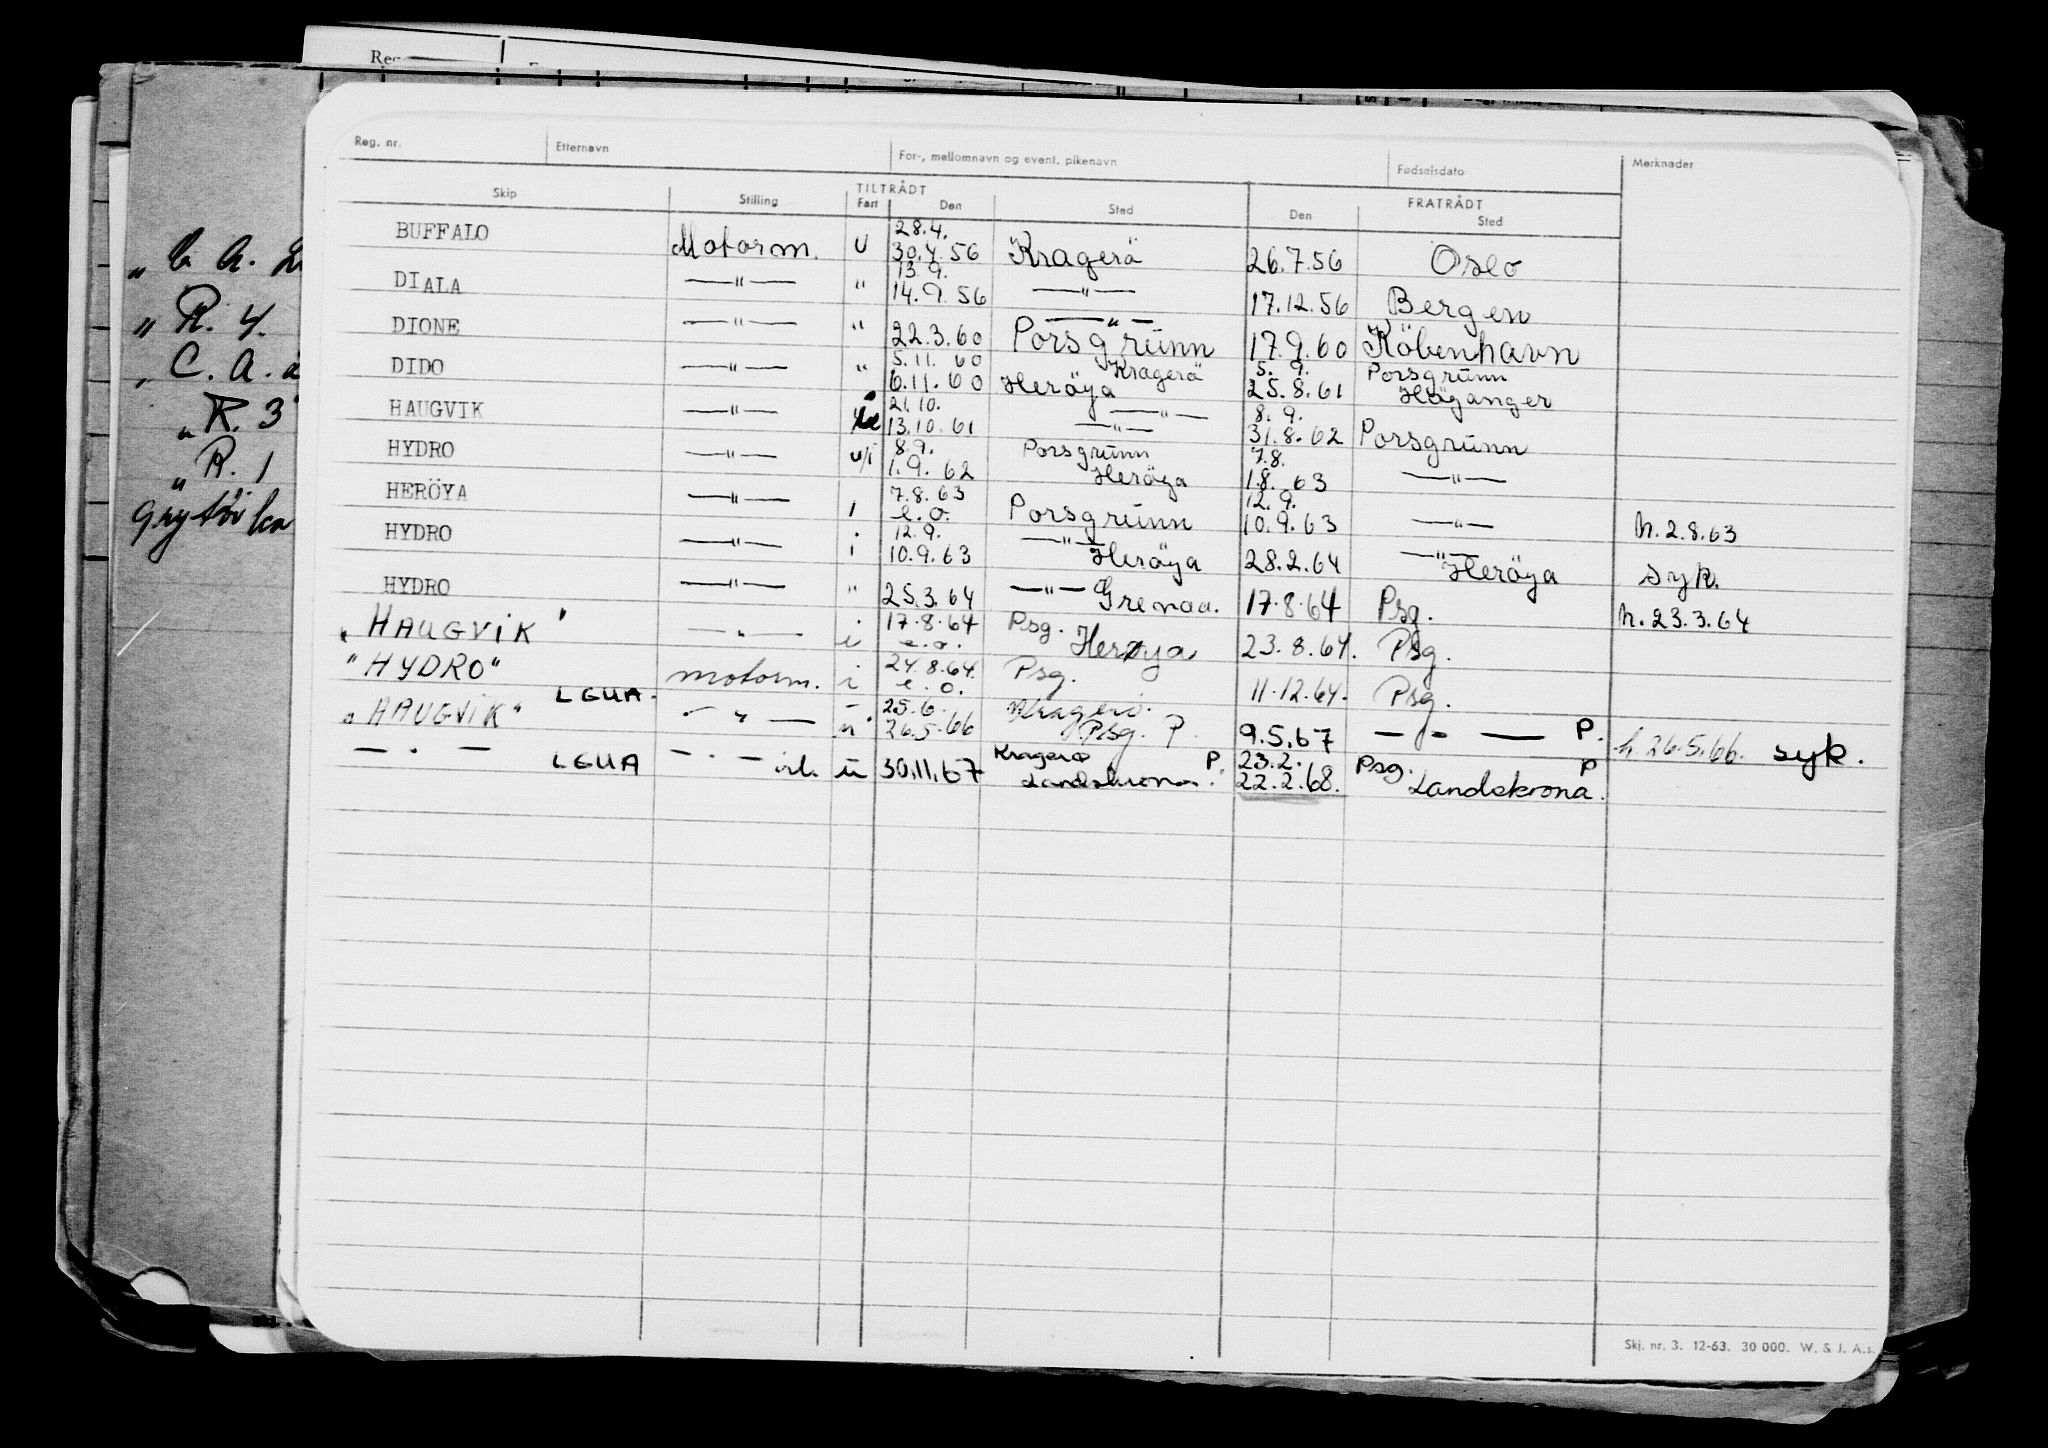 Reg. nr. Etternavn For-, mellomnavn og event. pikenavn Fødselsdato Merknader
TILTRÅDT FRATRÅDT
Skip Stilling Fart Den Sted Den Sted
28.4.
BUFFALO Motorm. U 30.4.56 Kragerö 26.7.56 Oslo
13.9.
DIALA —"— " 14.9.56 —"— 17.12.56 Bergen
—"—
DIONE —"— " 22.3.60 Porsgrunn 17.9.60 Köbenhavn
5.11.60 Kragerö 5.9. Porsgrunn
DIDO —"— " 6.11.60 Heröya 25.8.61 Höganger
21.10. —"— 8.9.
HAUGVIK —"— 13.10.61 —"— 31.8.62 Porsgrunn
8.9. Porsgrunn 7.8.
HYDRO —"— u/i 1.9.62 Heröya 1.8.63 —"—
7.8.63 12.9.
HERÖYA —"— i e.o. Porsgrunn 10.9.63 —"— h. 2.8.63
12.9. —"— —"—
HYDRO —"— i 10.9.63 Heröya 28.2.64 Heröya syk.
HYDRO —"— " 25.3.64 —"— Grenaa. 17.8.64 Psg. h. 23.3.64
17.8.64 Psg.
"HAUGVIK" —"— i e.o. Herøya 23.8.64. Psg.
24.8.64. Psg.
"HYDRO" motorm. i e.o. 11.12.64. Psg.
LGUA. 25.6. Kragerö.
"HAUGVIK" —"— 26.5.66 Psg. P. 9.5.67 —"— P. h. 26.5.66. syk.
Kragerø P. 23.2. Psg. P
— . — LGUA — . — u 30.11.67 Landskrona. 22.2.68. Landskrona.
Skj. nr. 3. 12-63. 30 000. W. & J. A.s.
Reg
" C. A.
" R. 4.
" C. A.
"R. 3"
"R. 1